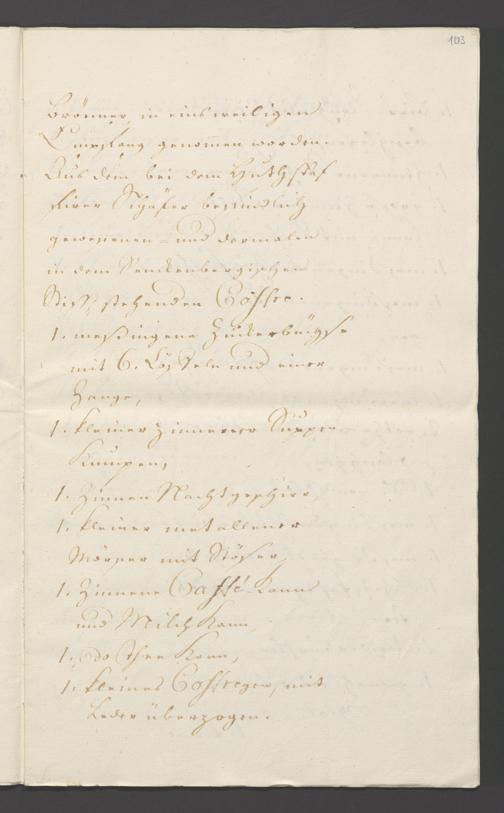 103
Brönner, in einsweiligen
Empfang genommen worden.
Aus dem bei dem Huthstaf-
firer Schäfer befindlich
gewesenen und dermalen
in dem Senckenbergischen
Stift stehenden Coffre.
1. meßingene Zuckerbüchse
mit 6. Löffeln und einer
Zange,
1. kleiner zinnerner Suppen
Kumpen,
1. Zinnen Nachtgeschirr,
1. kleiner metallener
Mörser mit Stößer,
1. Zinnene Caffé Kann
und Milch Kann,
1. do Thee Kann,
1. kleines Coffregen, mit
Leder überzogen.